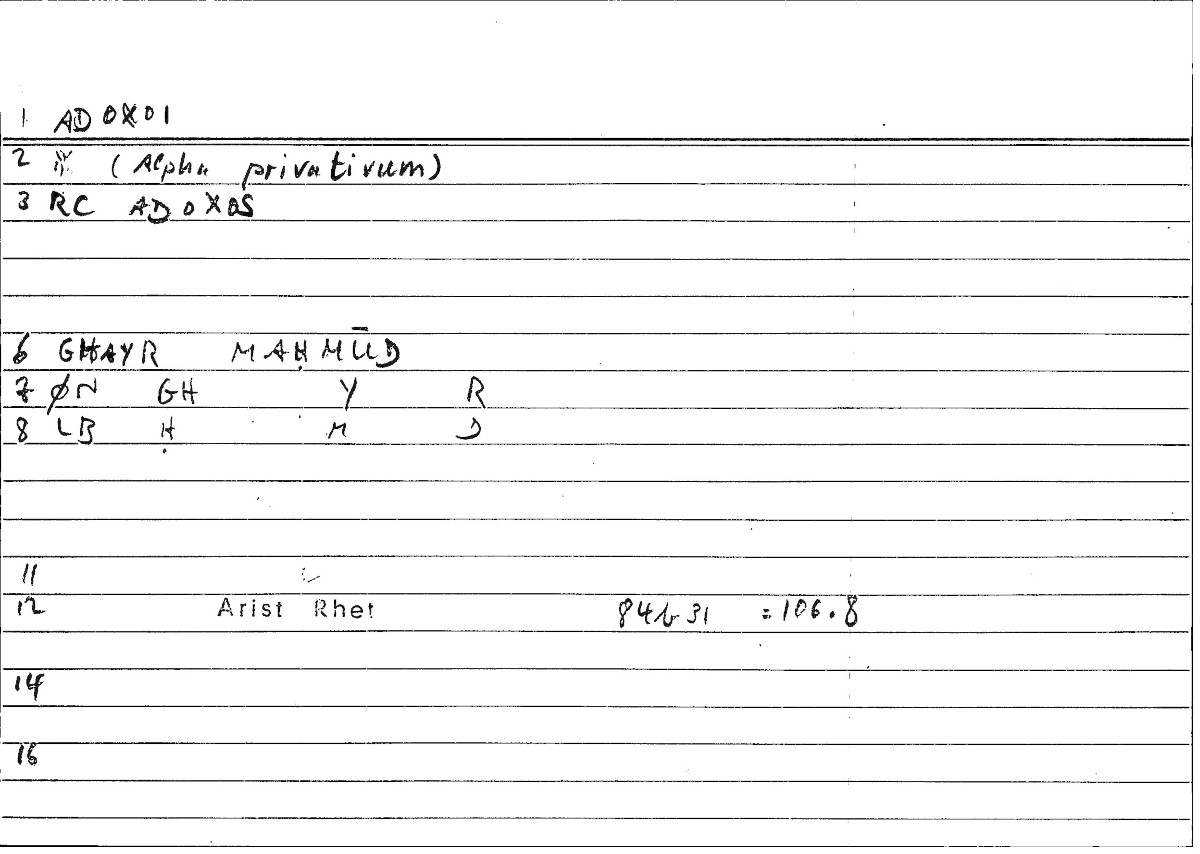 1 ADOXOI
2 (Alpha privativum)
3 RC ADOXOS
6 GHAYR MAḤMŪD
7 ØN GH Y R
8 LB Ḥ M D
11
12 Arist Rhet 84b31 =106.8
14
16